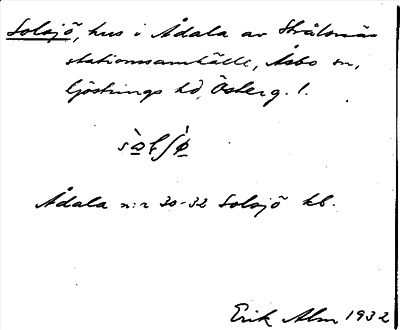 Solsjö, hus i Ådala av Strålsnäs
stationssamhälle, Åsbo sn,
Göstrings hd, Österg. l.
Ådala n:r 30-32 Solsjö kb.
Erik Alm 1932